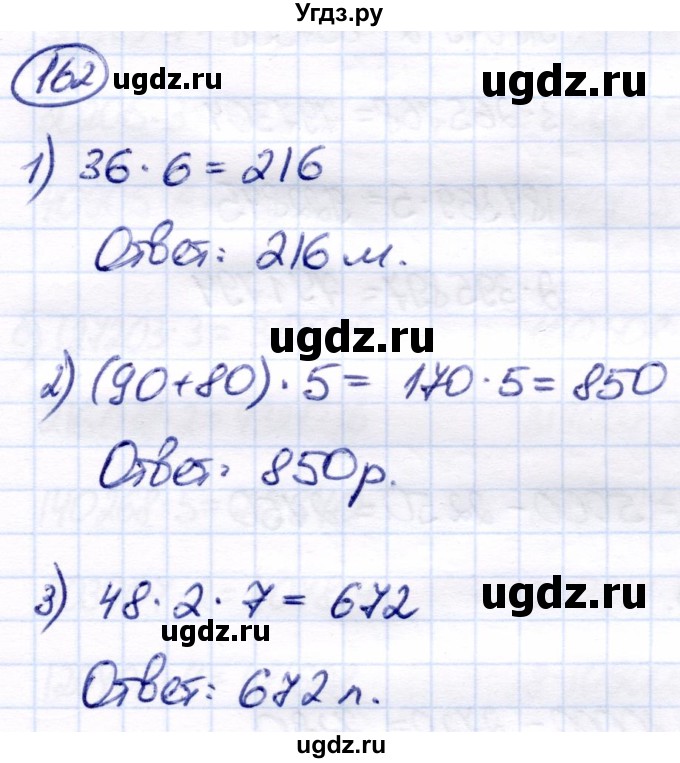 Угдз.ру
162 ugdz.ru
ugdz.ru
1) 36 · 6 = 216
Ответ: 216 м.
ugdz.ru
2) (90+80) · 5 = 170 · 5 = 850
Ответ: 850 р.
3) 48 · 2 · 7 = 672
ugdz.ru
ugdz.ru
Ответ: 672 л.
ugdz.ru